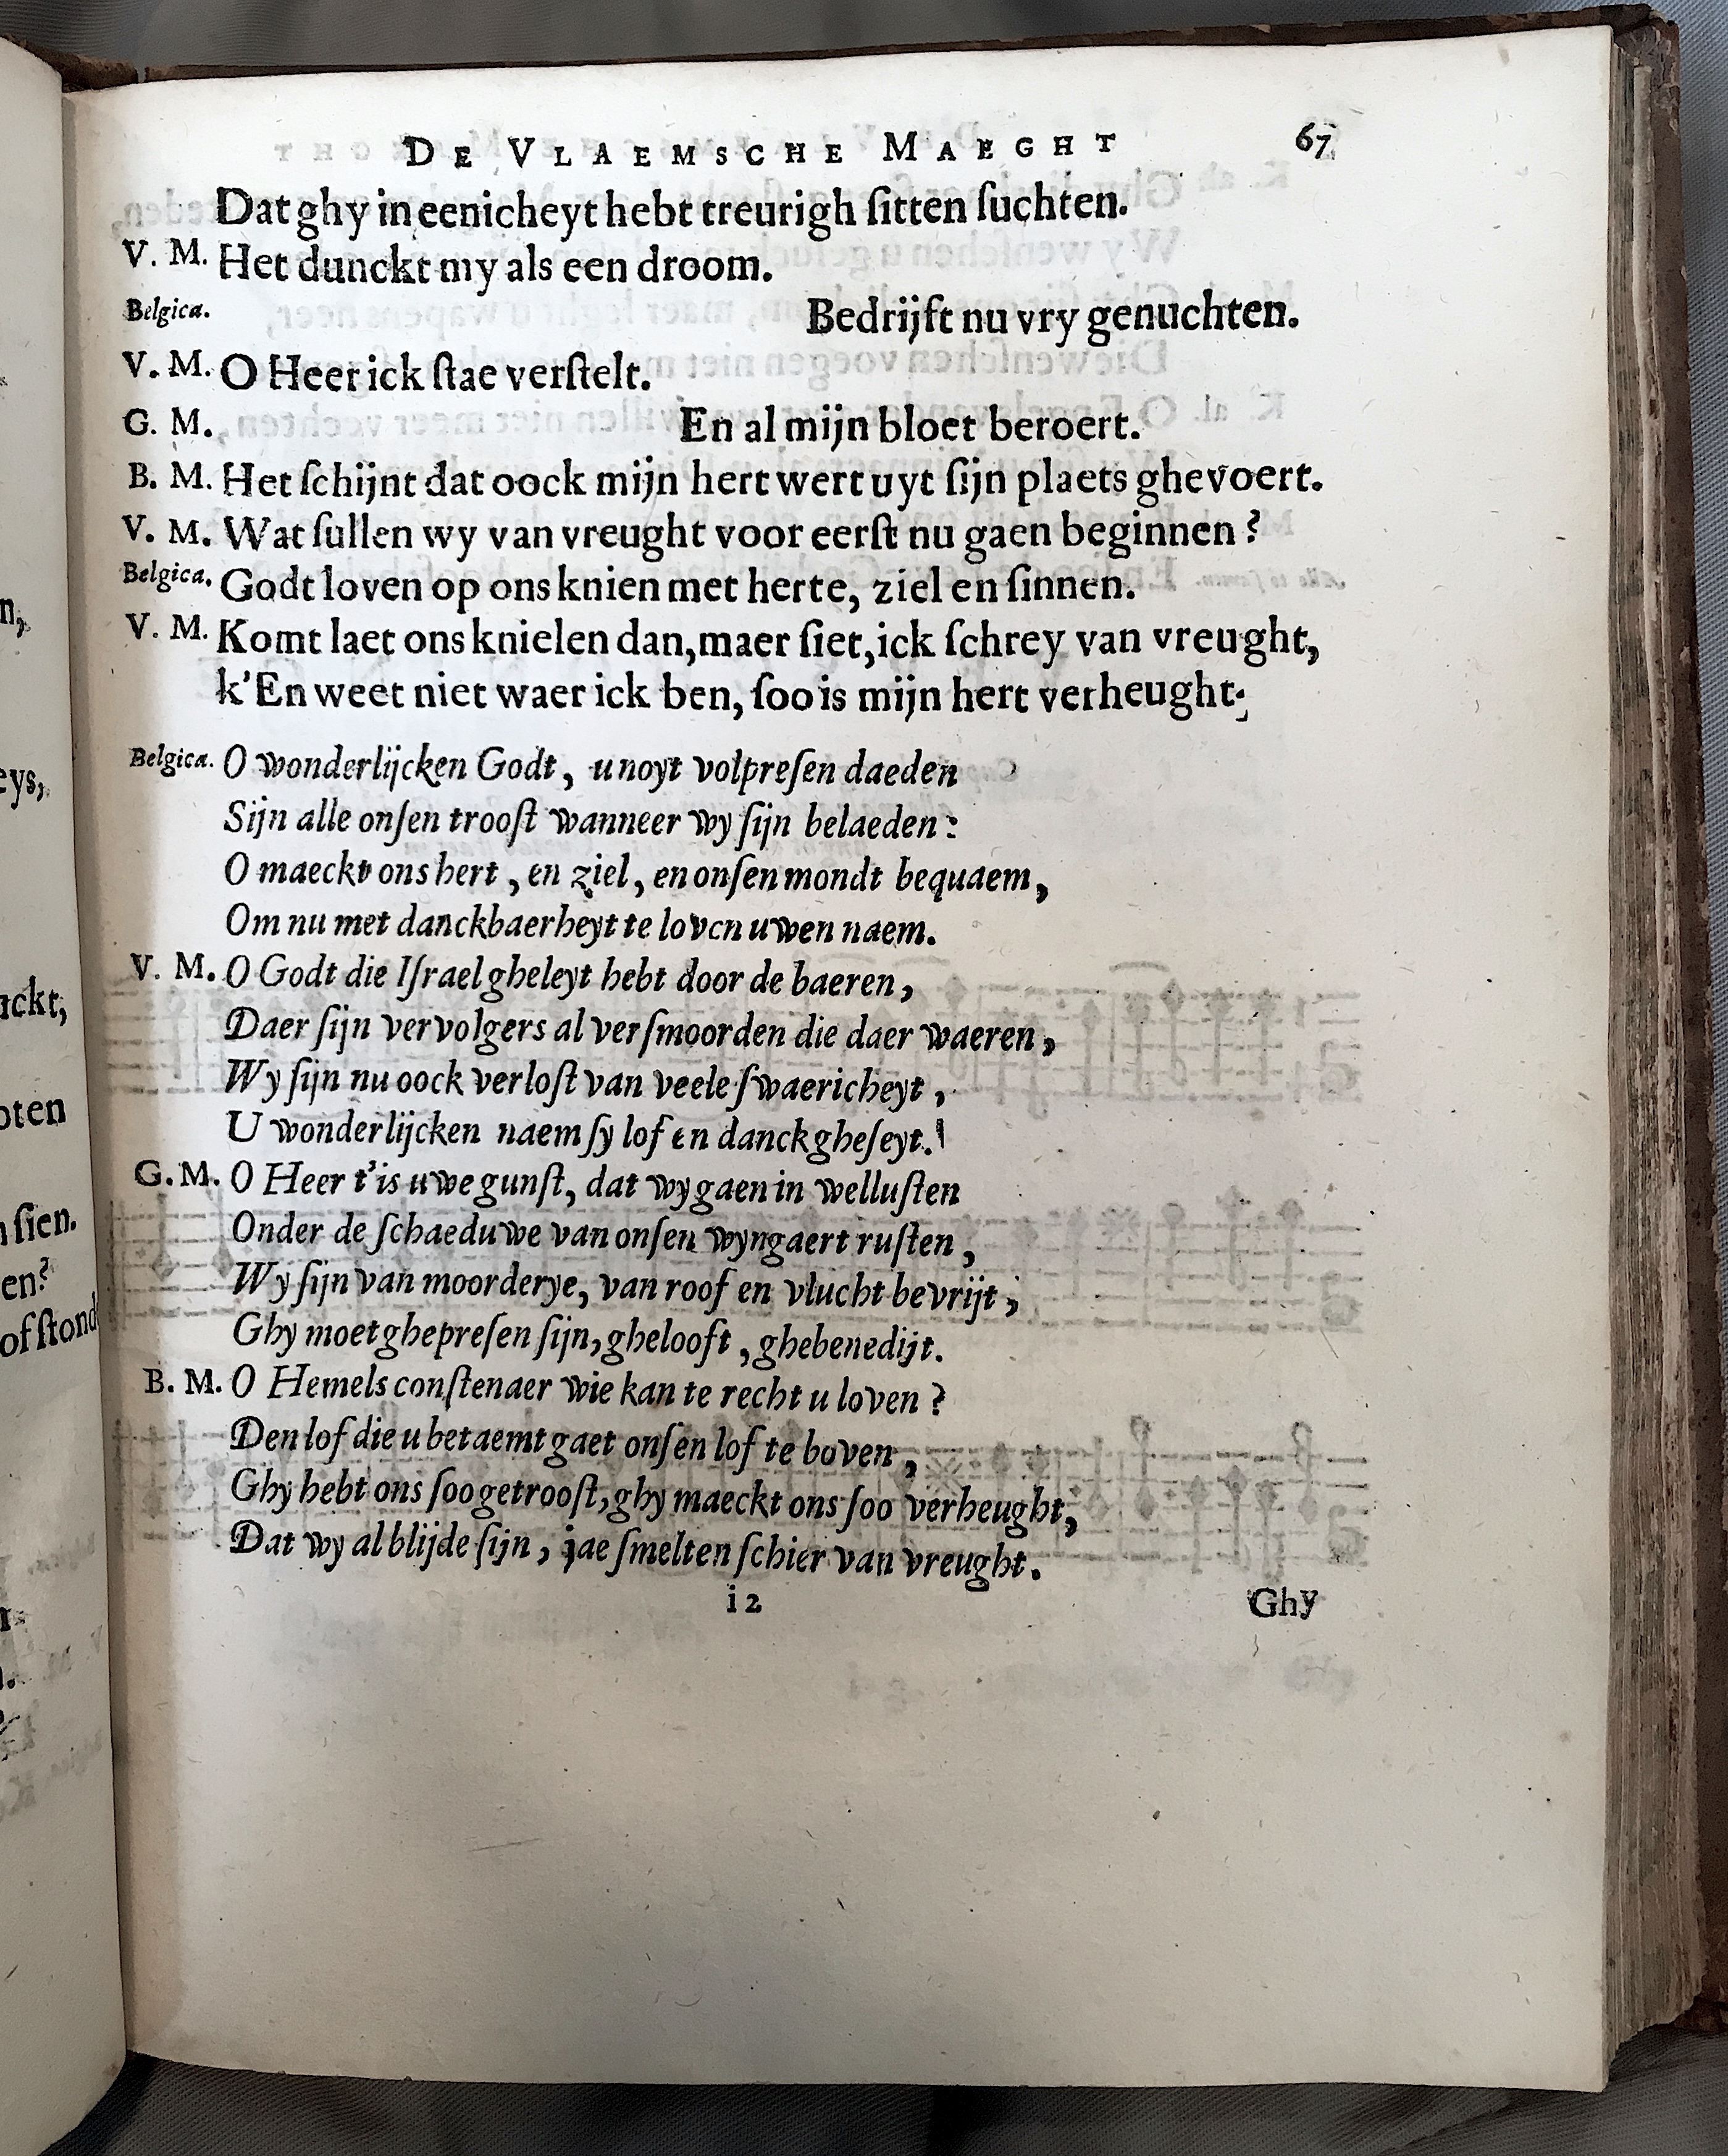 DE VLAEMSCHE MAEGHT 67
Dat ghy in eenicheyt hebt treurigh ſitten ſuchten.
V. M. Het dunckt my als een droom.
Belgica. Bedrijft nu vry genuchten.
V. M. O Heer ick ſtae verſtelt.
G. M. En al mijn bloet beroert.
B. M. Het ſchijnt dat oock mijn hert wert uyt ſijn plaets ghevoert.
V. M. Wat ſullen wy van vreught voor eerſt nu gaen beginnen?
Belgica. Godt loven op ons knien met herte, ziel en ſinnen.
V. M. Komt laet ons knielen dan, maer ſiet, ick ſchrey van vreught,
k'En weet niet waer ick ben, ſoo is mijn hert verheught.
Belgica. O wonderlijcken Godt, u noyt volpreſen daeden
Sijn alle onſen trooſt wanneer wy ſijn belaeden:
O maeckt ons hert, en ziel, en onſen mondt bequaem,
Om nu met danckbaerheyt te loven uwen naem.
V. M. O Godt die Iſrael gheleyt hebt door de baeren,
Daer ſijn vervolgers al verſmoorden die daer waeren,
Wy ſijn nu oock verloſt van veele ſwaericheyt,
U wonderlijcken naem ſy lof en danck gheſeyt.
G. M. O Heer t'is uwe gunſt, dat wy gaen in welluſten
Onder de ſchaeduwe van onſen wyngaert ruſten,
Wy ſijn van moorderye, van roof en vlucht bevrijt,
Ghy moet ghepreſen ſijn, ghelooft, ghebenedijt.
B. M. O Hemels conſtenaer wie kan te recht u loven?
Den lof die u betaemt gaet onſen lof te boven,
Ghy hebt ons ſoo getrooſt, ghy maeckt ons ſoo verheught,
Dat wy al blijde ſijn, jae ſmelten ſchier van vreught.
i 2 Ghy